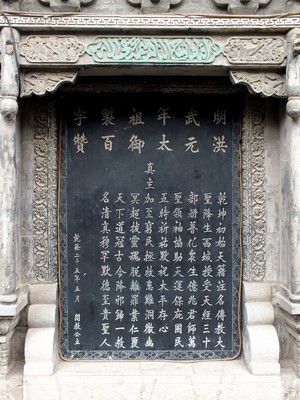 明洪
武元
年太
祖御
製百
字讚
乾坤初始天籍注名傳教大
聖降生西域授受天經三十
部冊普化眾生億兆君師萬
聖領袖協助天運保庇國民
五時祈祐默祝太平存心
真主加至窮民拯救患難洞徹幽
冥超拔靈魂脫離罪業仁覆
天下道冠古今降邪歸一教
名清真穆罕默德至貴聖人
乾隆二十五年五月 閤教公立